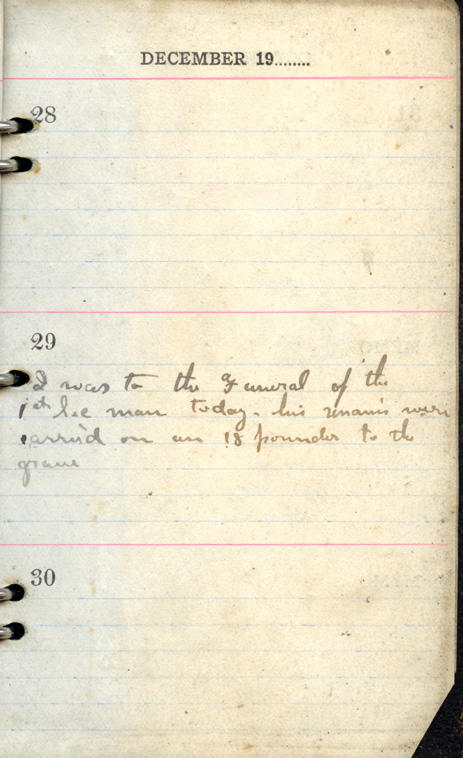 DECEMBER 19........
28
29
I was to the Funeral of the
1st man today. his remains were
carried on an 18 pounder to the
grave
30